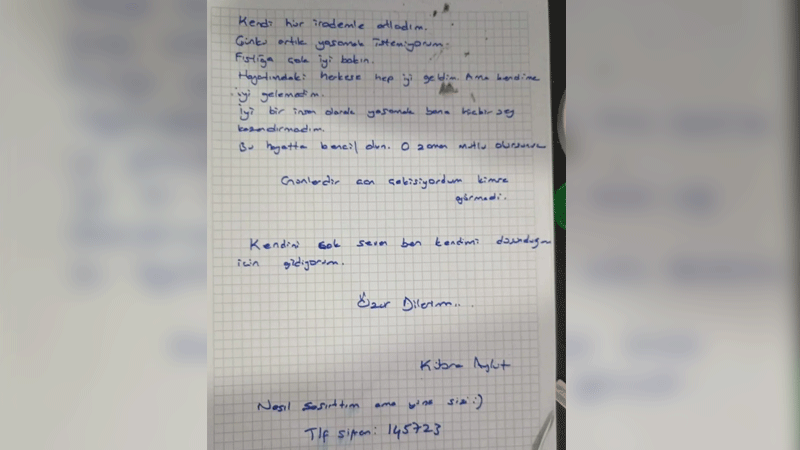 Kendi hür irademle atladım.
Çünkü artık yaşamak istemiyorum.
Fıstığa çok iyi bakın.
Hayatımdaki herkese hep iyi geldim. Ama kendime
iyi gelemedim.
İyi bir insan olarak yaşamak bana hiçbir şey
kazandırmadı.
Bu hayatta bencil olun. O zaman mutlu olursunuz
Günlerdir can çekişiyordum kimse
görmedi.
Kendini çok seven ben kendimi düşündüğüm
için gidiyorum.
Özür Dilerim..
Kübra
Nasıl şaşırttım ama yine sizi:)
Tlf şifrem: 145723